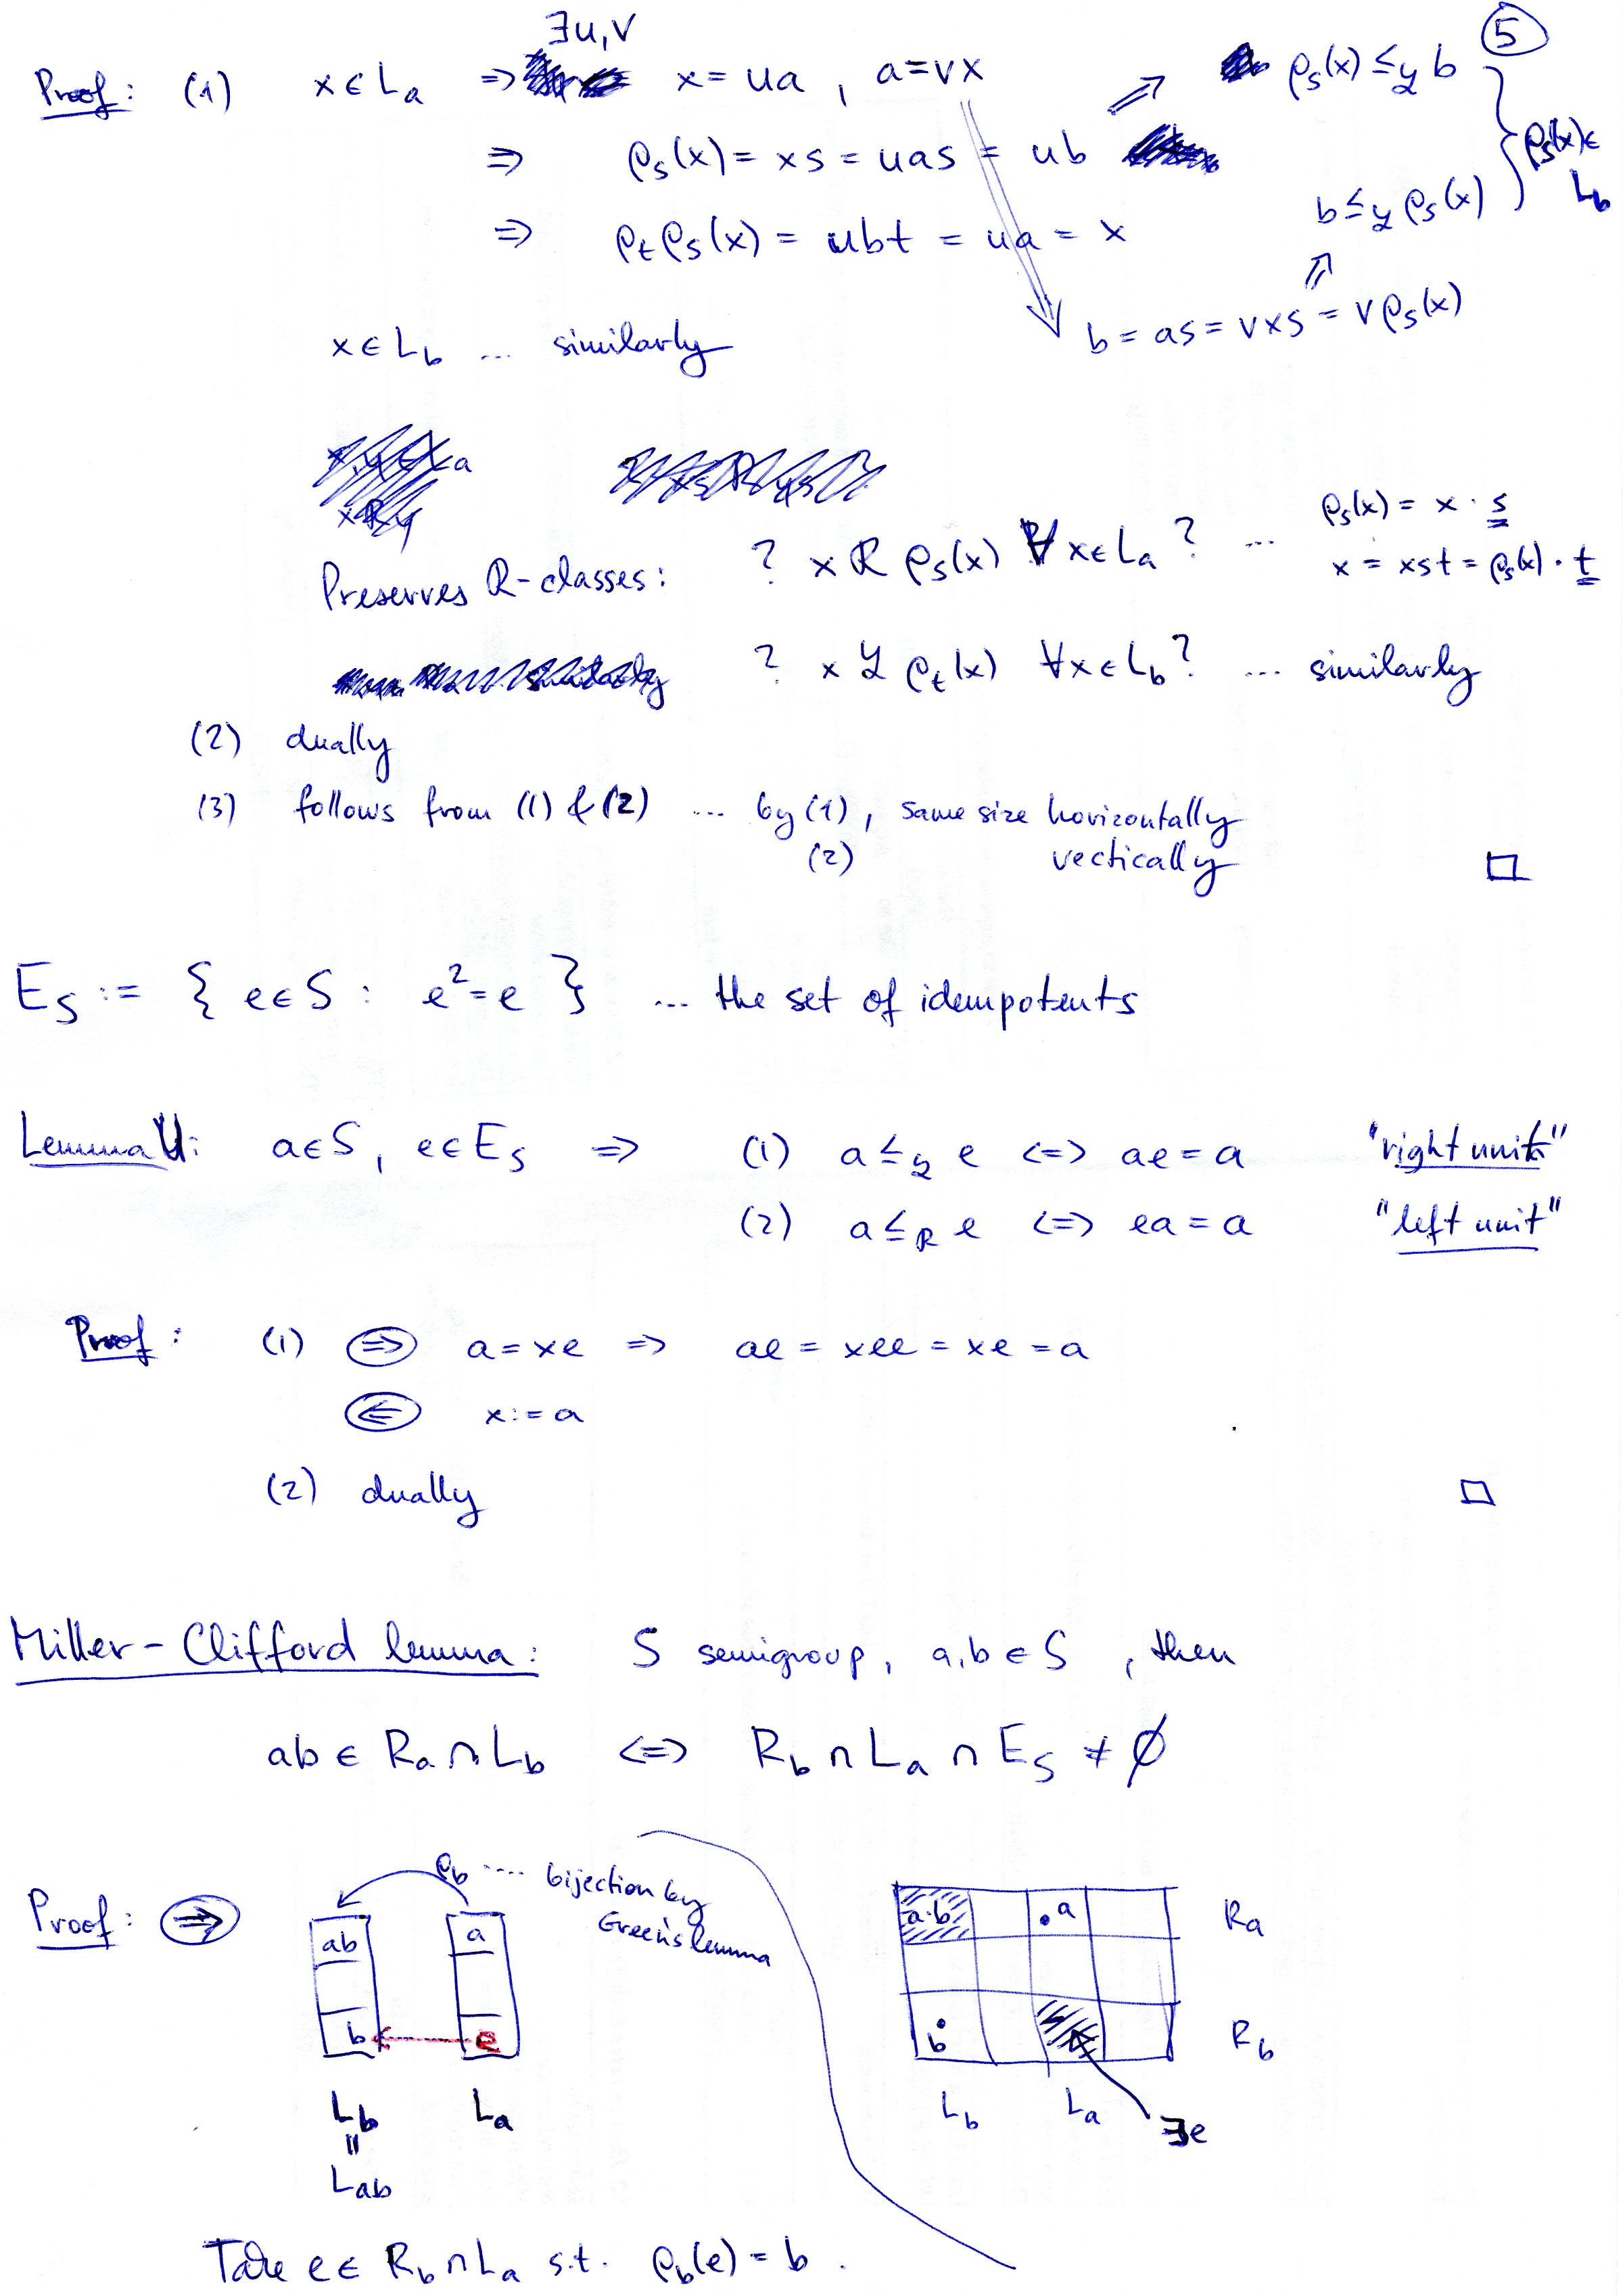 ⑤
Proof: (1) x ∈ L_a ⇒ ∃u,v x = ua , a = vx ⇒ ρ_s(x) ≤_L b
⇒ ρ_s(x) = xs = uas = ub
ρ_s(x) ∈ L_b
b ≤_L ρ_s(x)
⇒ ρ_t ρ_s(x) = ubt = ua = x
⇒ b = as = vxs = vρ_s(x)
x ∈ L_b ... similarly
ρ_s(x) = x · s
Preserves R-classes: ? x R ρ_s(x) ∀x ∈ L_a ? ... x = xst = ρ_s(x) · t
? x L ρ_t(x) ∀x ∈ L_b ? ... similarly
(2) dually
(3) follows from (1) & (2) ... by (1), same size horizontally
(2) vectically □
E_S := { e ∈ S : e² = e } ... the set of idempotents
Lemma U: a ∈ S , e ∈ E_S ⇒ (1) a ≤_L e ⟺ ae = a "right unit"
(2) a ≤_R e ⟺ ea = a "left unit"
Proof: (1) ⇒ a = xe ⇒ ae = xee = xe = a
⇐ x := a
(2) dually □
Miller-Clifford lemma: S semigroup, a,b ∈ S , then
ab ∈ R_a ∩ L_b ⟺ R_b ∩ L_a ∩ E_S ≠ ∅
Proof: ⇒ ρ_b .... bijection by
Green's lemma
ab a
b e
L_b L_a
=
L_ab
a·b a R_a
b R_b
L_b L_a ∃e
Take e ∈ R_b ∩ L_a s.t. ρ_b(e) = b .